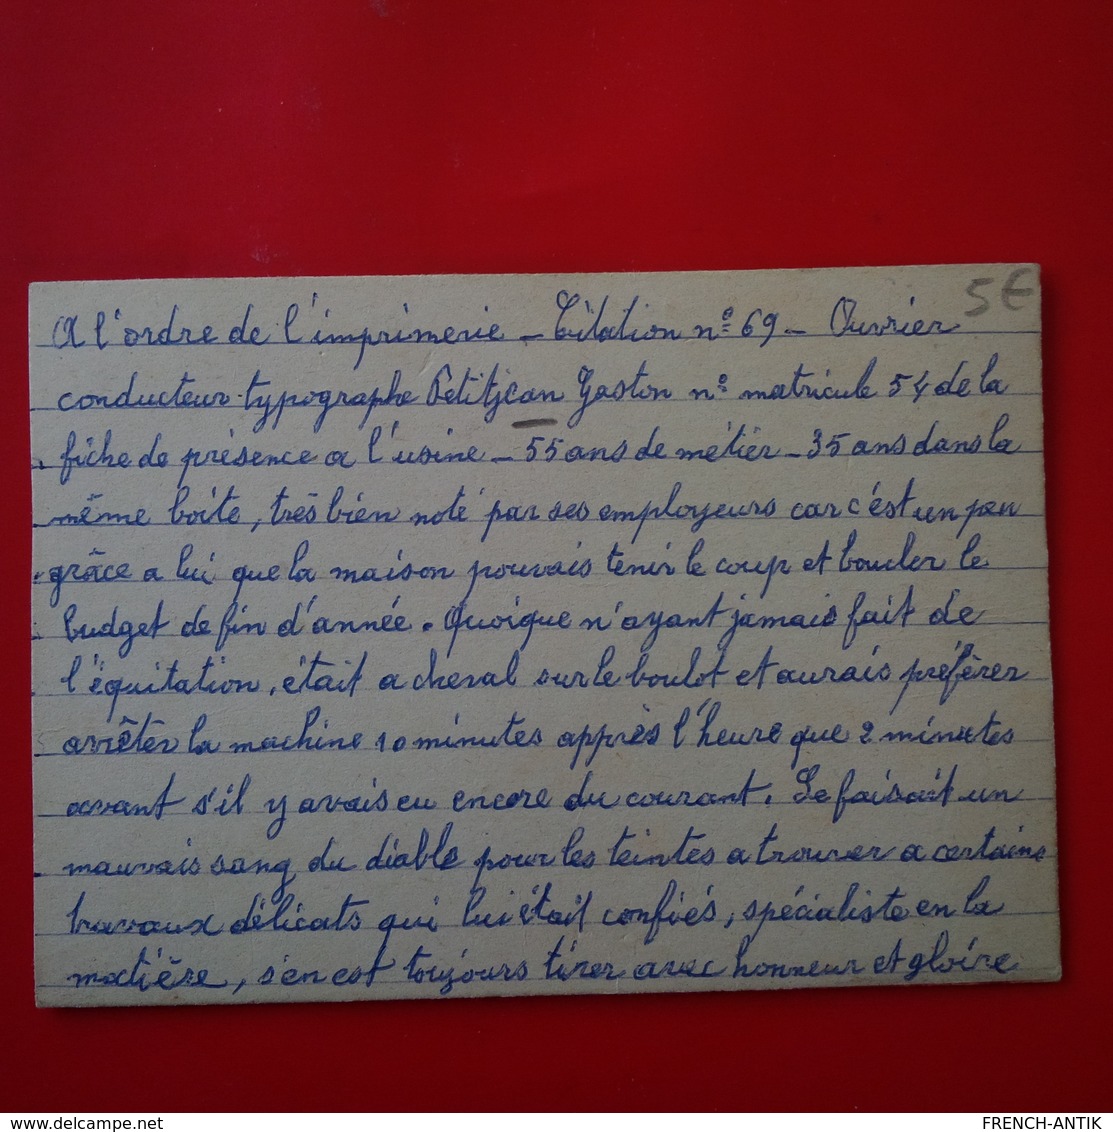 5€
A l'ordre de l'imprimerie – Citation n° 69 – Ouvrier
conducteur-typographe Petitjean Gaston n° matricule 54 de la
fiche de présence a l'usine – 55 ans de métier – 35 ans dans la
même boîte, très bien noté par ses employeurs car c'est un peu
grâce a lui que la maison pouvais tenir le coup et boucler le
budget de fin d'année. Quoique n'ayant jamais fait de
l'équitation, était a cheval sur le boulot et aurais préférer
arrêter la machine 10 minutes apprès l'heure que 2 minutes
avant s'il y avais eu encore du courant. Se faisait un
mauvais sang du diable pour les teintes a trouver a certains
travaux délicats qui lui était confiés, spécialiste en la
matière, s'en est toujours tirer avec honneur et gloire
delcampe.net
FRENCH-ANTIK